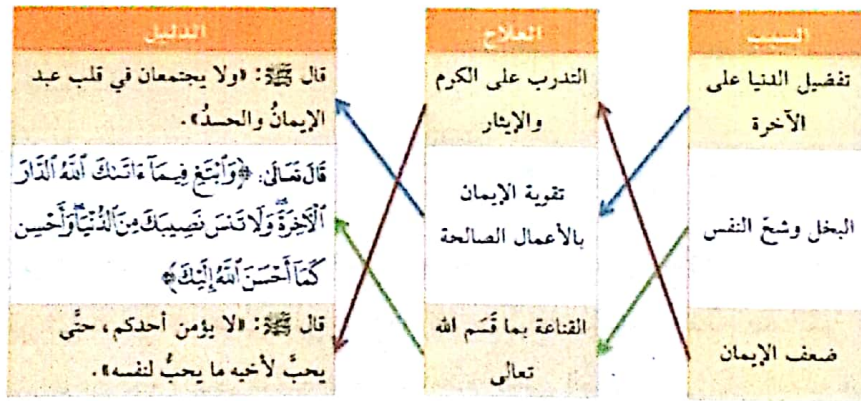 السبب
تفضيل الدنيا على
الآخرة
البخل وشحّ النفس
ضعف الإيمان
العلاج
التدرب على الكرم
والإيثار
تقوية الإيمان
بالأعمال الصالحة
القناعة بما قَسَم الله
تعالى
الدليل
قال ﷺ: «ولا يجتمعان في قلب عبد
الإيمانُ والحسدُ».
قَالَ تَعَالَى: ﴿وَٱبْتَغِ فِيمَآ ءَاتَىٰكَ ٱللَّهُ ٱلدَّارَ
ٱلْآخِرَةَۖ وَلَا تَنسَ نَصِيبَكَ مِنَ ٱلدُّنْيَاۖ وَأَحْسِن
كَمَآ أَحْسَنَ ٱللَّهُ إِلَيْكَ﴾
قال ﷺ: «لا يؤمن أحدكم، حتَّى
يحبَّ لأخيه ما يحبُّ لنفسه».